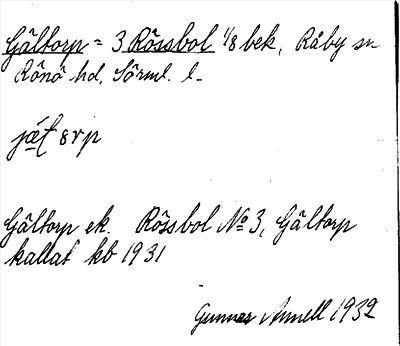 Gältorp = 3 Rössbol 1/8 bek, Råby sn
Rönö hd. Sörml. l.
Gältorp ek. Rössbol No 3, Gältorp
kallat kb 1931
Gunnar Annell 1932